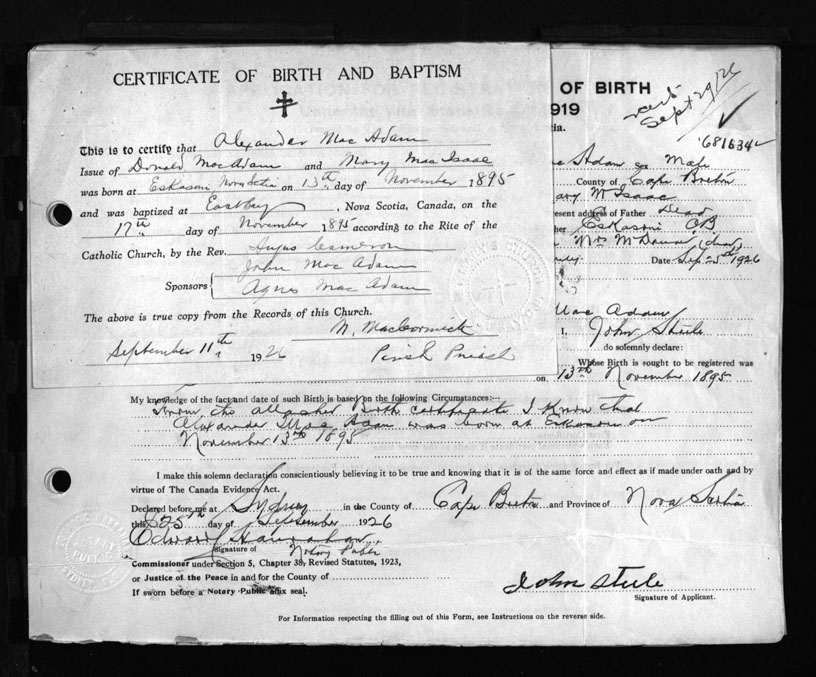 CERTIFICATE OF BIRTH AND BAPTISM
This is to certify that Alexander Mac Adam
Issue of Donald MacAdam and Mary MacIsaac
was born at Eskasoni Nova Scotia on 13th day of November 1895
and was baptized at Eastbay, Nova Scotia, Canada, on the
17th day of November 1895 according to the Rite of the
Catholic Church, by the Rev. Angus Cameron
John Mac Adam
Sponsors
Agnes Mac Adam
The above is true copy from the Records of this Church.
M. MacCormick
September 11th 1926 Parish Priest
OF BIRTH
1919
Sept 29/26
681634
Adam Sex Male
County of Cape Breton
Mary McIsaac
present address of Father Dead
Eskasoni CB
Mrs
Date Sep 25th 1926
Mac Adam
I, John Steele
do solemnly declare:
Whose Birth is sought to be registered was
on 13th November 1895
My knowledge of the fact and date of such Birth is based on the following Circumstances:
From the Birth certificate I Know that
Alexander Mac Adam was born at Eskasoni on
November 13th 1895
I make this solemn declaration conscientiously believing it to be true and knowing that it is of the same force and effect as if made under oath and by
virtue of The Canada Evidence Act.
Declared before me at Sydney in the County of Cape Breton and Province of Nova Scotia
this 25th day of September 1926
Edward
Signature of Notary Public
Commissioner under Section 5, Chapter 38, Revised Statutes, 1923,
or Justice of the Peace in and for the County of
If sworn before a Notary Public affix seal.
John Steele
Signature of Applicant.
For Information respecting the filling out of this Form, see Instructions on the reverse side.